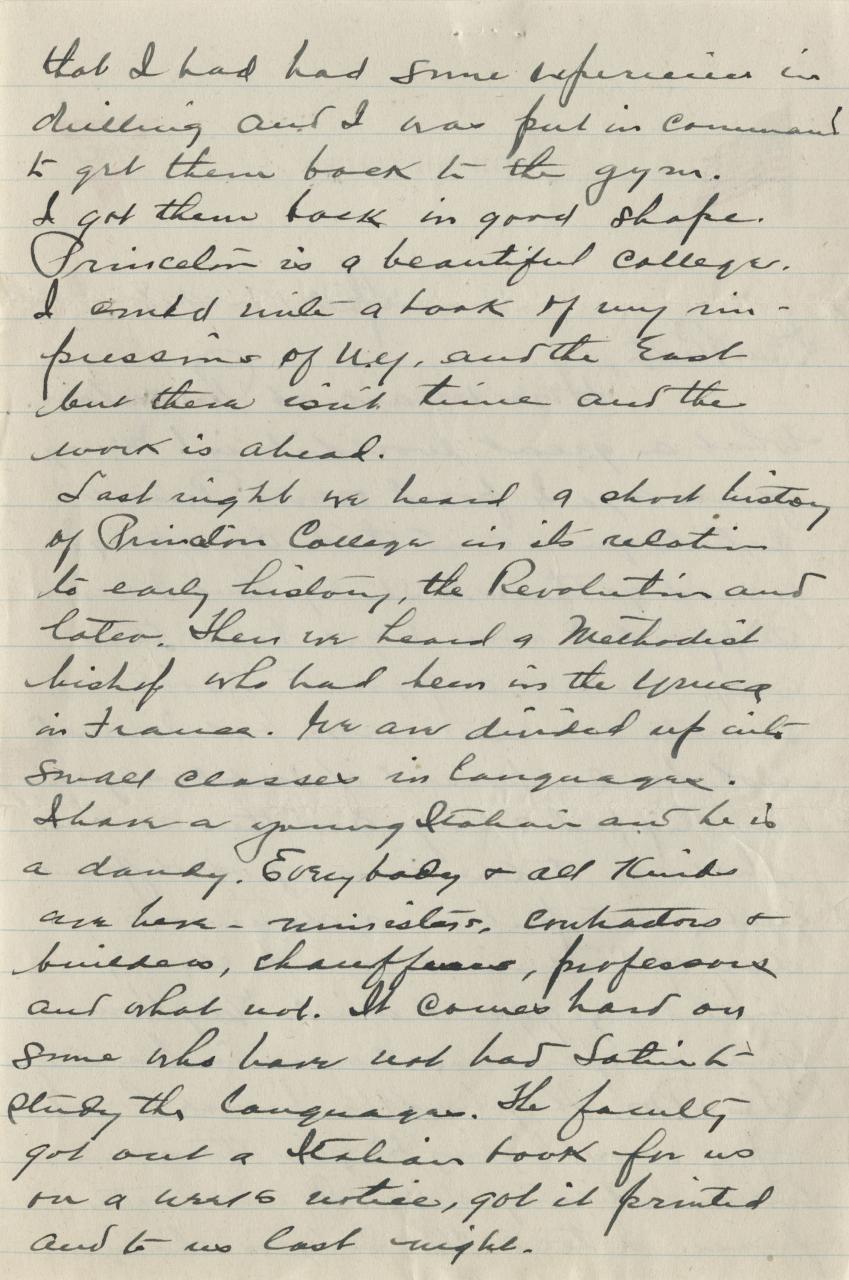 that I had had some experience in
drilling and I was put in command
to get them back to the gym.
I got them back in good shape.
Princeton is a beautiful college.
I could write a book of my im-
pressions of N.Y. and the East
but there isn't time and the
work is ahead.
Last night we heard a short history
of Princeton College in its relation
to early history, the Revolution and
later. Then we heard a Methodist
bishop who had been in the YMCA
in France. We are divided up into
small classes in languages.
I have a young Italian and he is
a dandy. Everybody & all kinds
are here - ministers, contractors &
builders, chauffeurs, professors
and what not. It comes hard on
some who have not had Latin to
study the languages. The faculty
got out a Italian book for us
on a week's notice, got it printed
and to us last night.